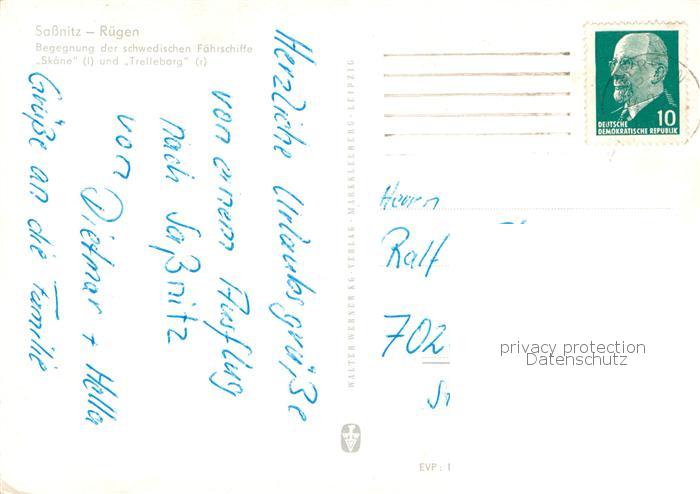 Saßnitz – Rügen
Begegnung der schwedischen Fährschiffe
„Skåne" (l) und „Trelleborg" (r)
Herzliche Urlaubsgrüße
von einem Ausflug
nach Saßnitz
von
Dietmar + Hella
Grüße an die Familie
WALTER WERNER KG · VERLAG · MARKKLEEBERG - LEIPZIG
10
DEUTSCHE
DEMOKRATISCHE REPUBLIK
Herrn
Ralf
702
privacy protection
Datenschutz
EVP: 1